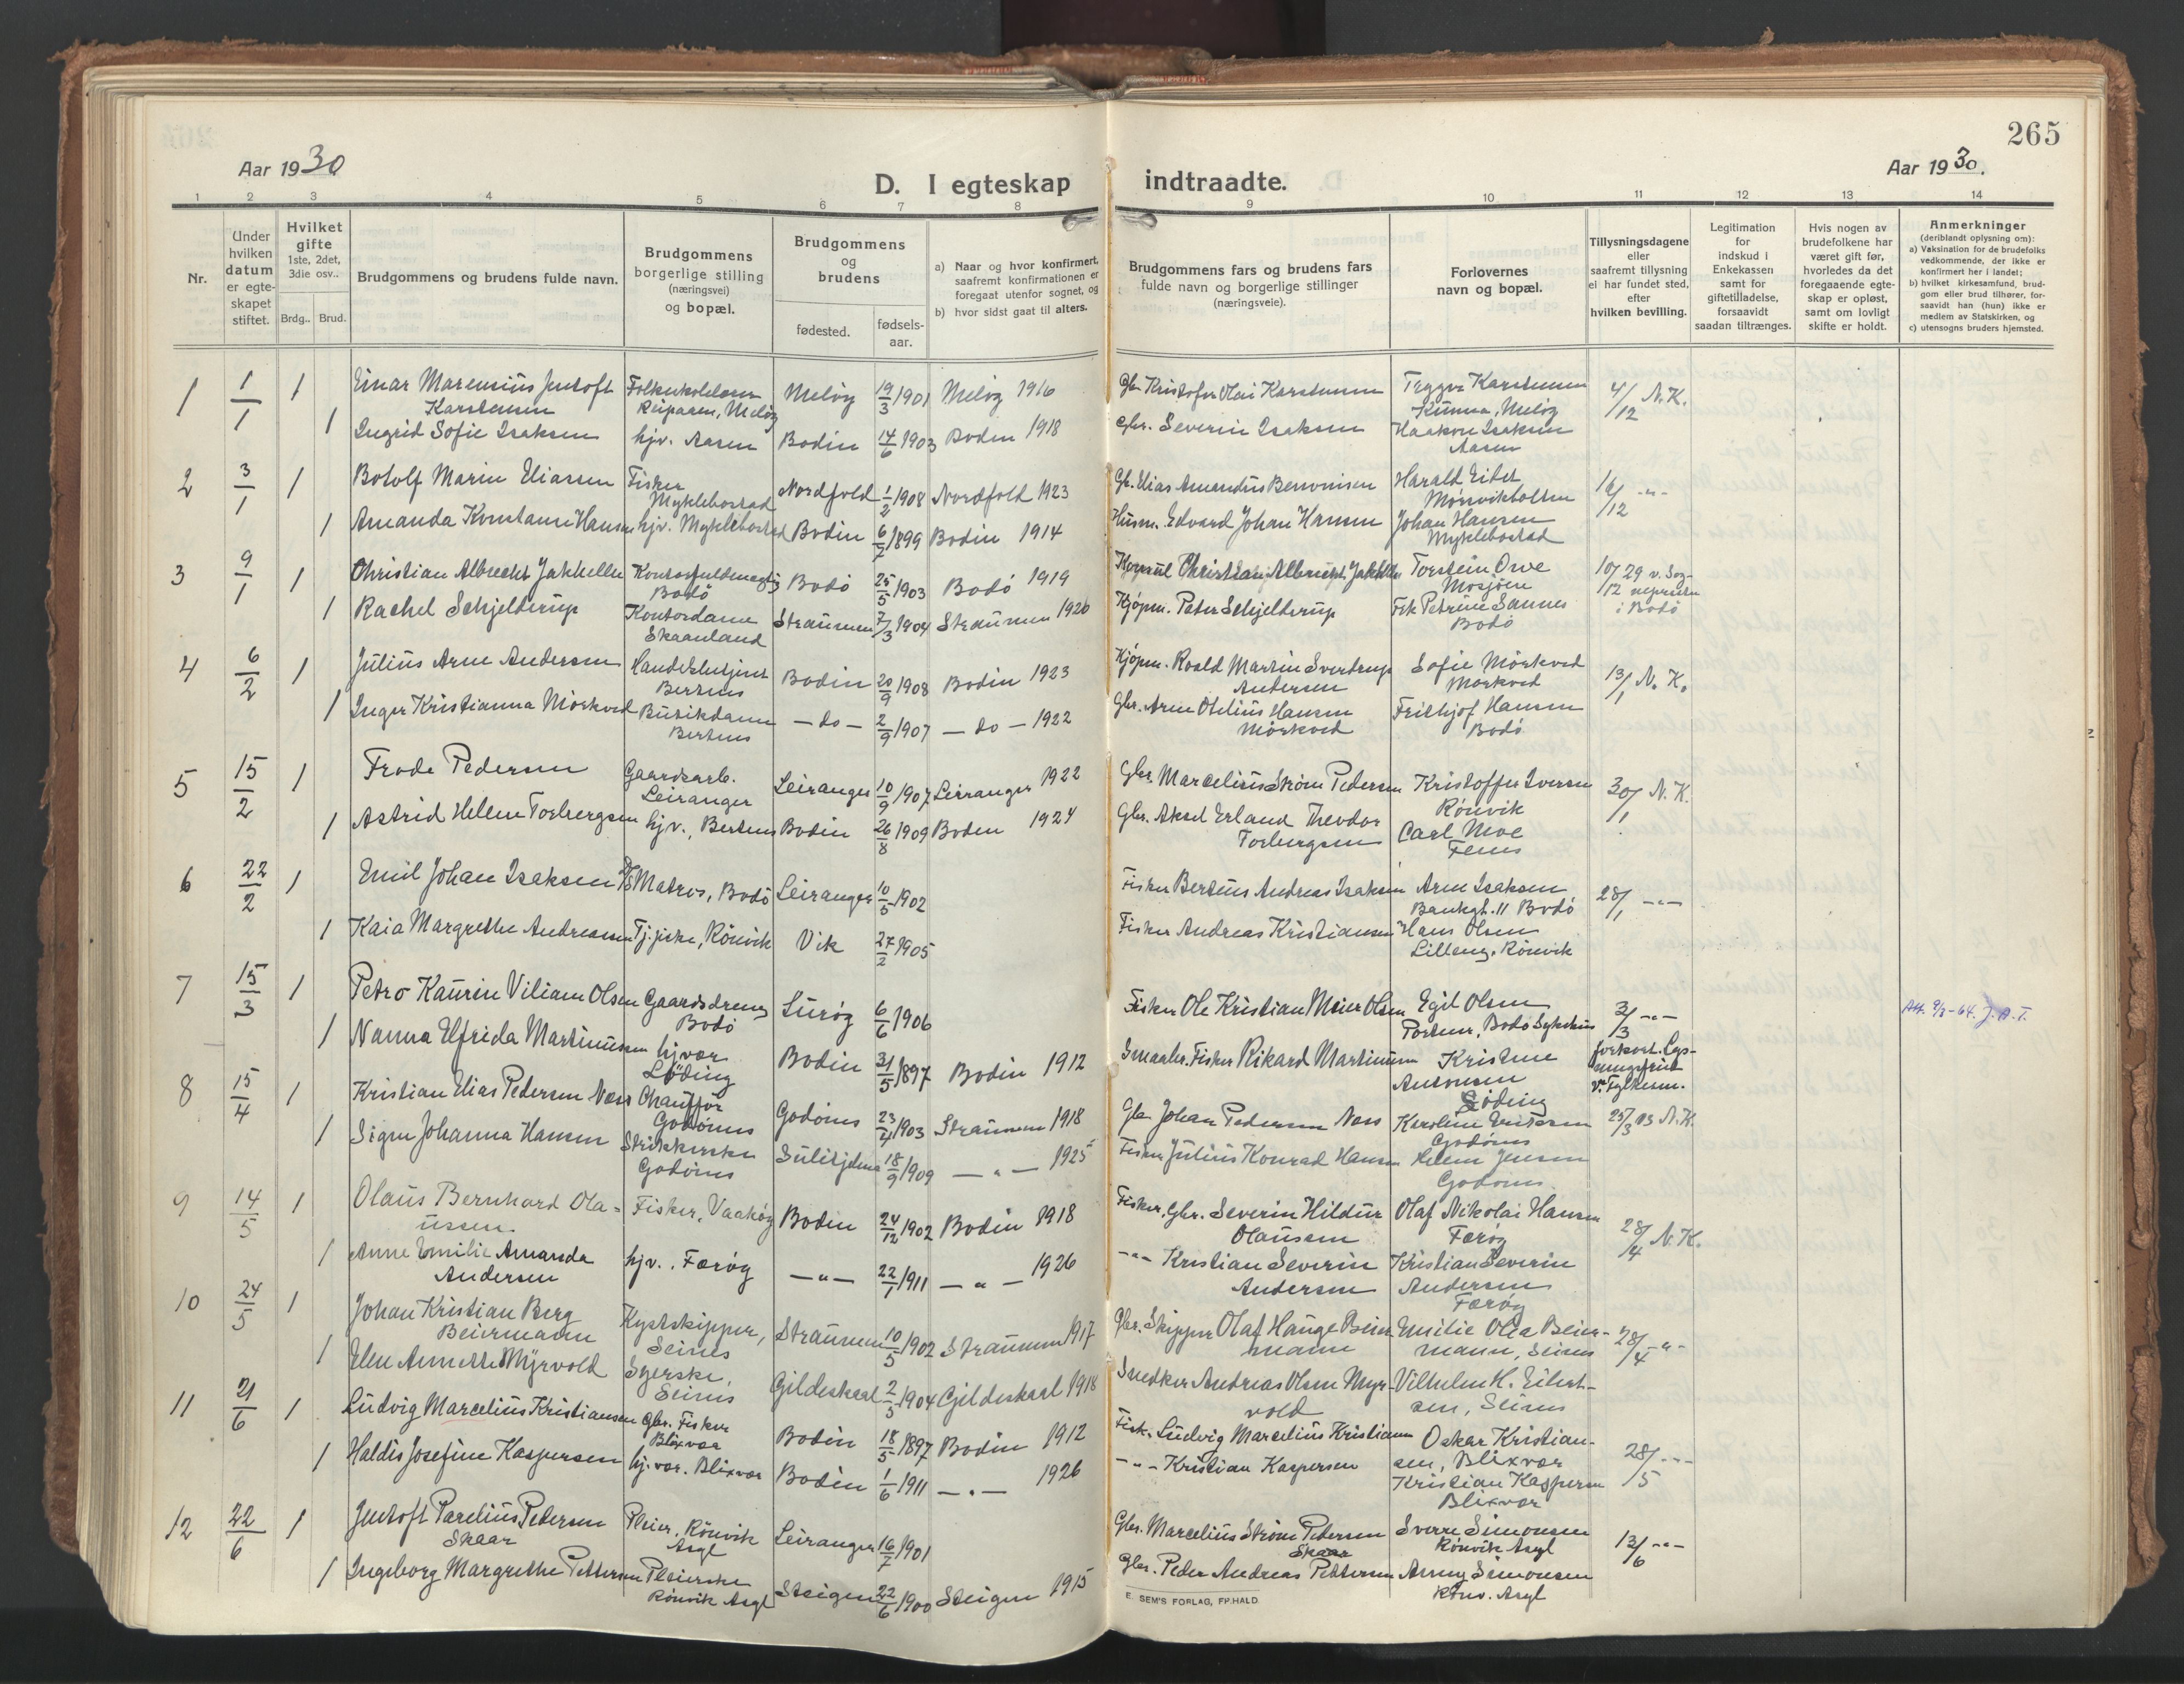 265
Aar 1930
Aar 1930.
D. I egteskap indtraadte.
1 2 3 4 5 6 7 8 9 10 11 12 13 14
Nr.
Under
hvilken
datum
er egte-
skapet
stiftet.
Hvilket
gifte
1ste, 2det,
3die osv..
Brdg.. Brud.
Brudgommens og brudens fulde navn.
Brudgommens
borgerlige stilling
(næringsvei)
og bopæl.
Brudgommens
og
brudens
fødested.
fødsels-
aar.
a) Naar og hvor konfirmert,
saafremt konfirmationen er
foregaat utenfor sognet, og
b) hvor sidst gaat til alters.
Brudgommens fars og brudens fars
fulde navn og borgerlige stillinger
(næringsveie).
Forlovernes
navn og bopæl.
Tillysningsdagene
eller
saafremt tillysning
ei har fundet sted,
efter
hvilken bevilling.
Legitimation
for
indskud i
Enkekassen
samt for
giftetilladelse,
forsaavidt
saadan tiltrænges.
Hvis nogen av
brudefolkene har
været gift før,
hvorledes da det
foregaaende egte-
skap er opløst,
samt om lovligt
skifte er holdt.
Anmerkninger
(deriblandt oplysning om):
a) Vaksination for de brudefolks
vedkommende, der ikke er
konfirmert her i landet;
b) hvilket kirkesamfund, brud-
gom eller brud tilhører, for-
saavidt han (hun) ikke er
medlem av Statskirken, og
c) utensogns bruders hjemsted.
1 1/1 1 Einar Marensius Jentoft Meløy 19/3 1901 Meløy 1916 Gbr. Kristofer Olai Karstensen Karstensen 4/12 N.K.
Karstensen Reipaaen, Meløy Kunna, Meløy
1 Ingrid Sofie Isaksen hjv. Aasen Bodin 14/6 1903 Bodin 1918 Gbr. Severin Isaksen Haakon Isaksen
Aasen
2 3/1 1 Botolf Marin Eliassen Fisker Nordfold 1/2 1908 Nordfold 1923 Gb. Elias Amandus Harald Eilet 16/12 -"-
Myklebostad Mørsvikbotten
1 Amanda Konstanse Hansen hjv. Myklebostad Bodin 6/7 1899 Bodin 1914 Husm. Edvard Johan Hansen Johan Hansen
Myklebostad
3 9/1 1 Christian Albrecht Jakhelln Kontorfuldmegtig Bodø 25/5 1903 Bodø 1919 Christian Albrecht Jakhelln Torstein Orve 10/12 29 v. Sog-
Bodø Mosjøen nepresten
1 Rachel Schjelderup Kontordame Straumen 7/3 1904 Straumen 1920 Kjøpm. Peter Schjelderup Frk Petrine Sannes i Bodø
Skaanland Bodø
4 6/2 1 Julius Arne Andersen Handelsbetjent Bodin 20/9 1908 Bodin 1923 Kjøpm. Roald Martin Sverdrup Sofie Mørkved 13/1 N.K.
Bertnes Andersen Mørkved
1 Inger Kristianna Mørkved Butikdame - do - 2/9 1907 - do - 1922 Gbr. Arne Otelius Hansen Frithjof Hansen
Bertnes Mørkved Bodø
5 15/2 1 Frode Pedersen Gaardsarb. Leiranger 10/9 1907 Leiranger 1922 Gbr. Marcelius Strøm Pedersen Kristoffer Iversen 30/1 N.K.
Leiranger Rønvik
1 Astrid Helene Torbergsen hjv., Bertnes Bodin 26/8 1909 Bodin 1924 Gbr. Aksel Erland Theodor Carl Moe
Torbergsen
6 22/2 1 Emil Johan Isaksen Matros, Bodø Leiranger 10/5 1902 Fisker Bertius Andreas Isaksen Arne Isaksen 28/1 -"-
Bankgt. 11 Bodø
1 Kaia Margrethe Andreassen Tj.pike, Rønvik Vik 27/2 1905 Fisker Andreas Kristiansen Hans Olsen
Lilleng, Rønvik
7 15/3 1 Petro Kaurin Viliam Olsen Gaardsdreng Lurøy 6/6 1906 Fisker Ole Kristian Meier Olsen Egil Olsen 3/3 -"-
Bodø Portner, Bodø Sykehus
1 Nanna Elfrida Martinussen hjvær Bodin 31/5 1897 Bodin 1912 Smaabr. Fisker Rikard Martinussen Kristine forkort. Lys-
Løding Antonsen ningsfrist
Løding v. Fylkesm.
8 15/4 1 Kristian Elias Pedersen Næss Chauffør Godønes 23/4 1903 Straumen 1918 Gbr Johan Pedersen Næss Karoline Eriksen 25/3 N.K.
Godønes Godønes
1 Signe Johanna Hansen Strikkerske Sulitjelma 18/9 1909 - " - 1925 Fisker Julius Konrad Hansen Helene Jensen
Godønes Godønes
9 14/5 1 Olaus Bernhard Ola- Fisker, Bodin 24/12 1902 Bodin 1918 Fisker, Gbr. Severin Hildur Olaf Nikolai Hansen 28/4 N.K.
ussen. Olausen Færøy
1 Anne Emilie Amanda hjv., Færøy -"- 22/1 1911 - " - 1926 -"- Kristian Severin Kristian Severin
Andersen Andersen Andersen
Færøy
10 24/5 1 Johan Kristian Berg Kystskipper, Straumen 10/5 1902 Straumen 1917 Gbr. Skipper Olaf Hauge Beier- Emilie Olea Beier- 28/4 -"-
Beiermann Seines mann mann, Seines
1 Elen Annette Myrvold Syerske, Gildeskaal 2/5 1904 Gildeskaal 1918 Snedker Andreas Olsen Myr- Vilhelm H. Eilert-
Seines vold sen, Seines
11 21/6 1 Ludvig Marcelius Kristiansen Gbr. Fisker Bodin 18/5 1897 Bodin 1912 Fisk. Ludvig Marcelius Kristiansen Oskar Kristian- 28/5 -"-
Blixvær sen, Blixvær
1 Haldis Josefine Kaspersen hj.vær. Blixvær Bodin 1/6 1911 -"- 1926 -"- Kristian Kaspersen Kristian Kaspersen
Blixvær
12 22/6 1 Jentoft Parelius Pedersen Pleier, Rønvik Leiranger 16/7 1901 Gbr. Marcelius Strøm Pedersen Sverre Simonsen 13/6 -"-
Skaar Asyl Skaar Rønvik Asyl
1 Ingeborg Margrethe Pettersen Pleierske Steigen 22/6 1900 Steigen 1915 Gbr. Peder Andreas Pettersen Anny Simonsen
Rønvik Asyl Rønv. Asyl
E. SEM'S FORLAG, FR.HALD